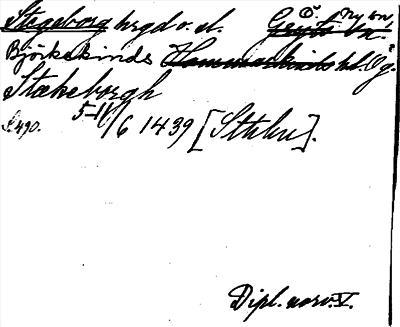 Stegeborg hrgd o. sl. Gryts sn, Ö. Ny sn,
Björkekinds Hammarkinds hd. Ög.
Stækeborgh
S. 490. 5-11/6 1439 [Sthlm].
Dipl. norv. V.